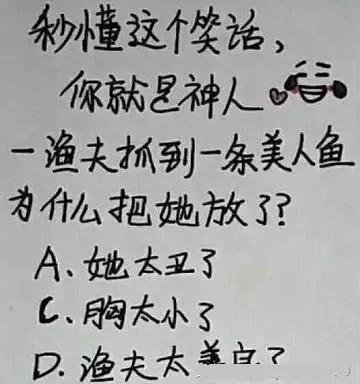 秒懂这个笑话,
你就是神人
一渔夫抓到一条美人鱼
为什么把她放了?
A、她太丑了
C、胸太小了
D、渔夫太善良了